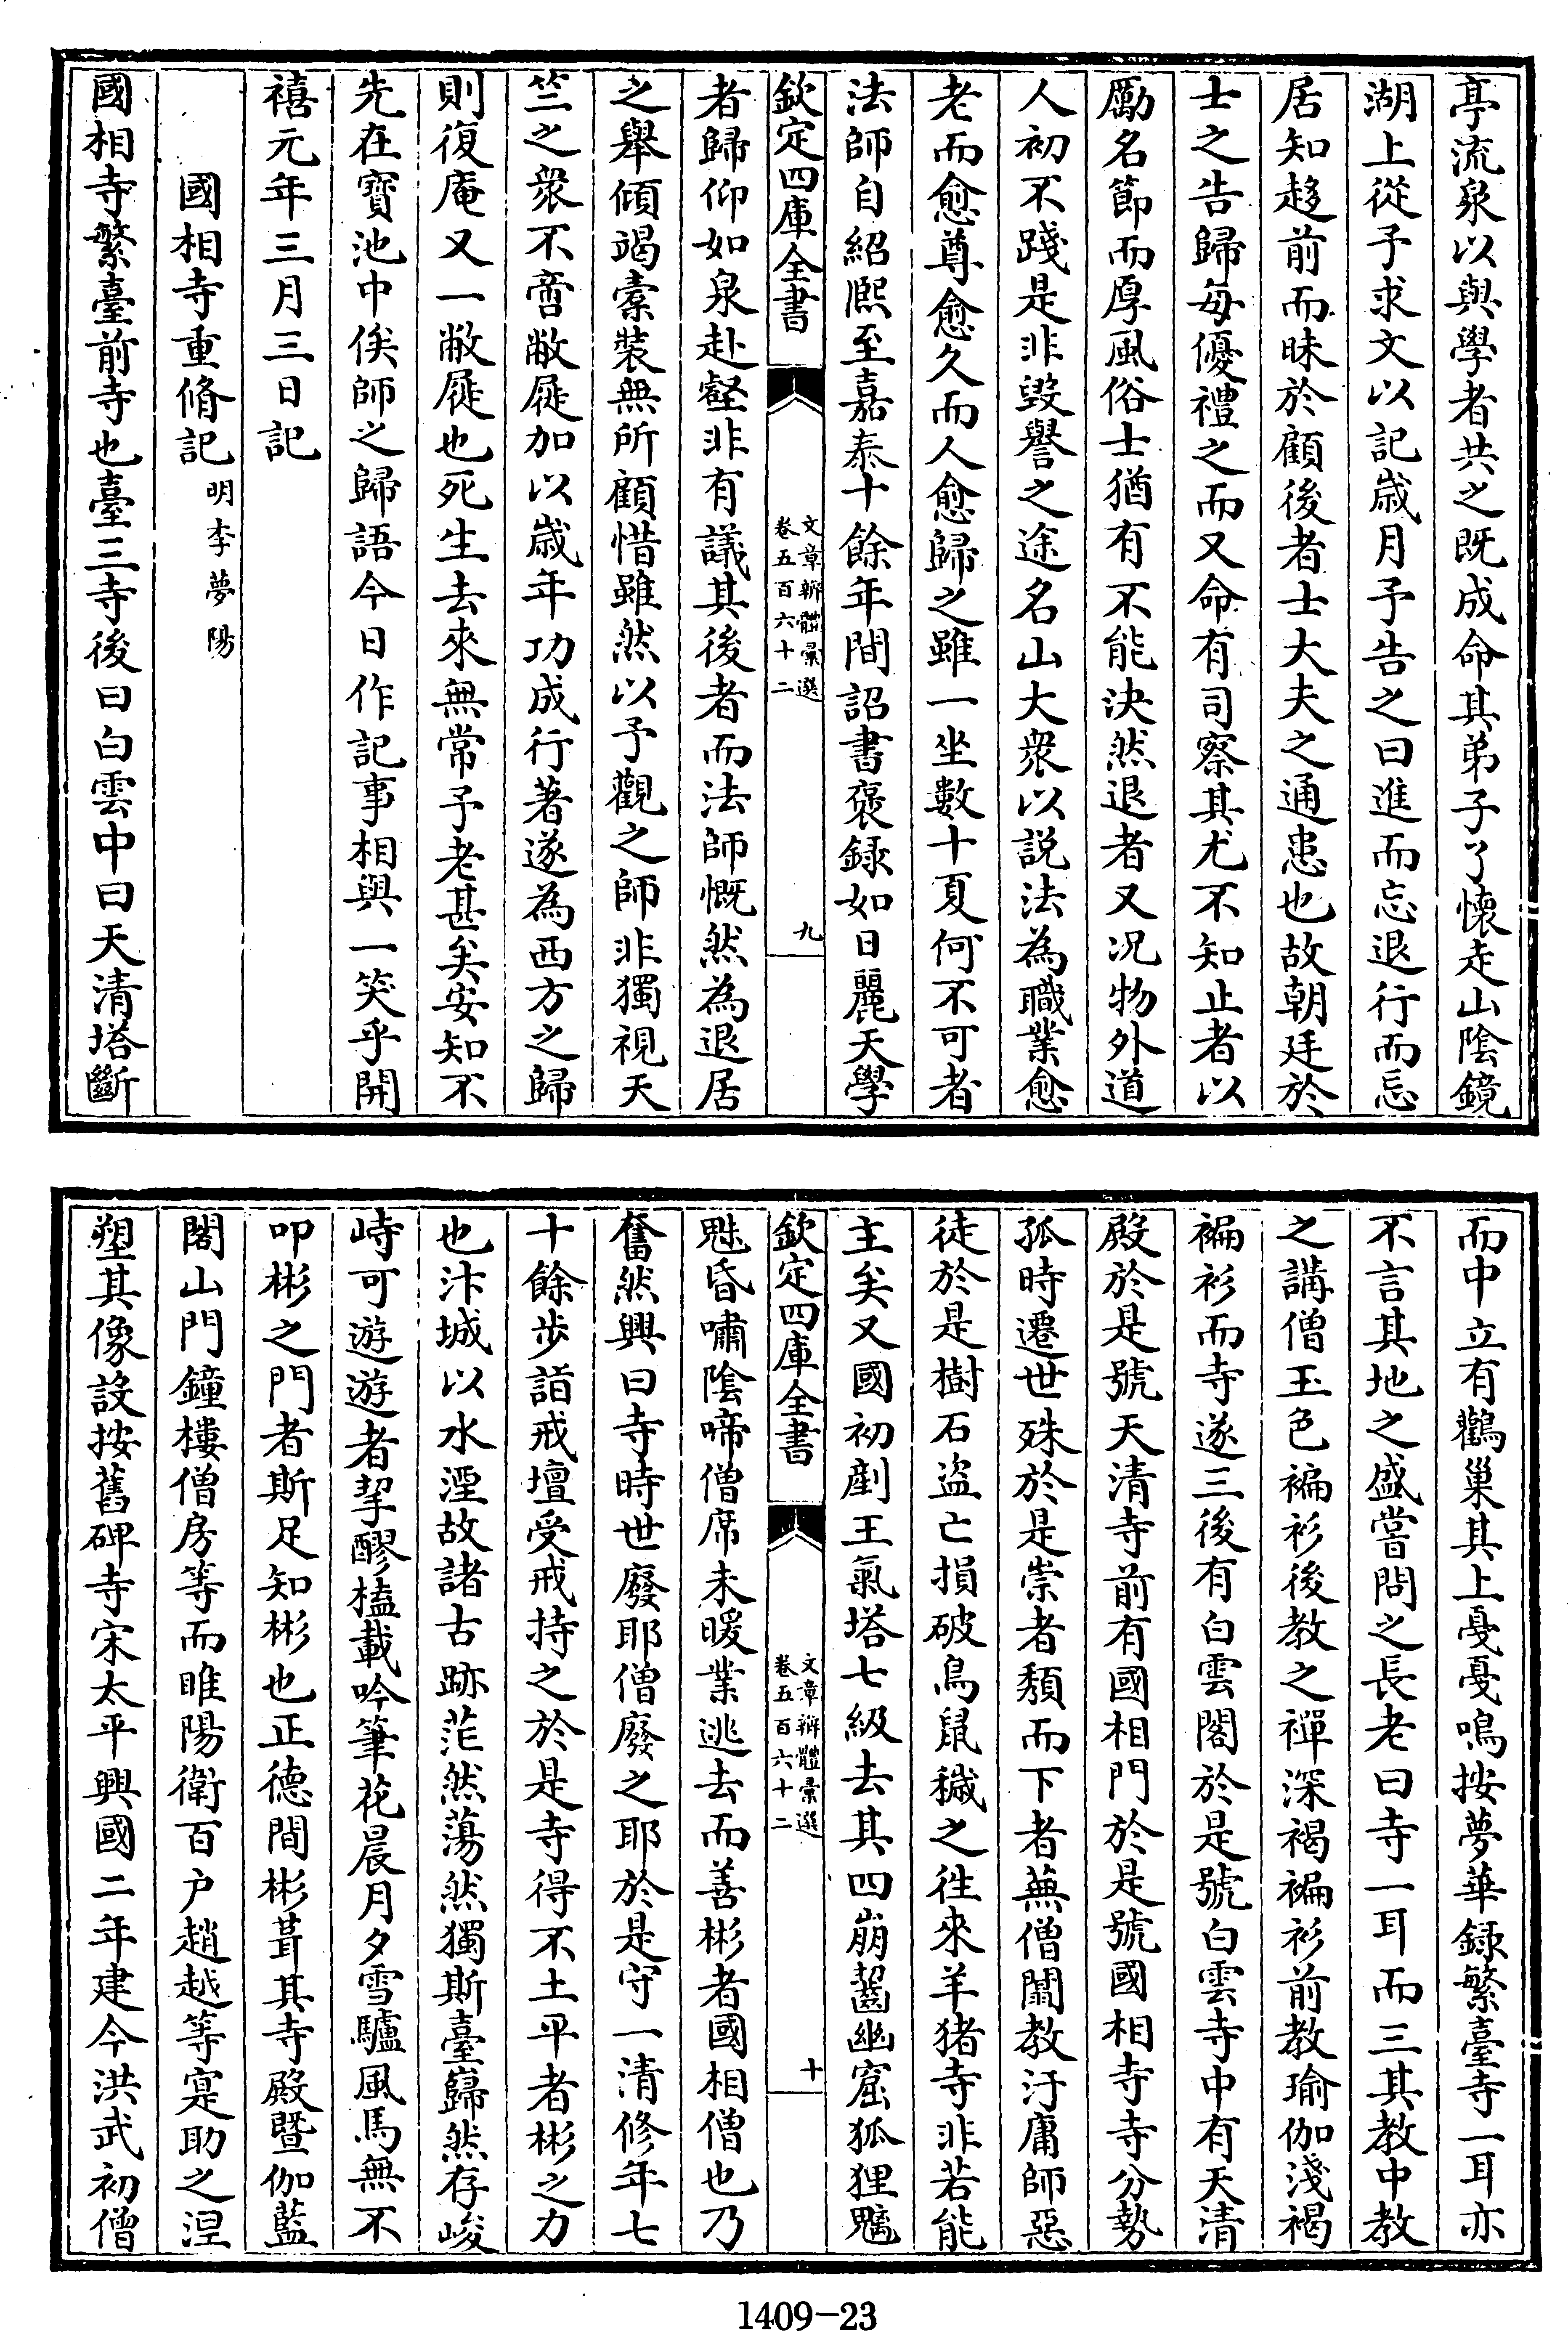 亭流泉以與學者共之既成命其弟子了懷走山陰鏡
湖上從予求文以記歲月予告之曰進而忘退行而忘
居知趍前而昧於顧後者士大夫之通患也故朝廷於
士之告歸每優禮之而又命有司察其尤不知止者以
勵名節而厚風俗士猶有不能決然退者又况物外道
人初不踐是非毀譽之途名山大衆以説法為職業愈
老而愈尊愈久而人愈歸之雖一坐數十夏何不可者
法師自紹熙至嘉泰十餘年間詔書褒録如日麗天學
欽定四庫全書
文章辨體彙選
卷五百六十二
九
者歸仰如泉赴壑非有議其後者而法師慨然為退居
之舉傾竭橐裝無所顧惜雖然以予觀之師非獨視天
竺之衆不啻敝屣加以歲年功成行著遂為西方之歸
則復庵又一敝屣也死生去來無常予老甚矣安知不
先在寶池中俟師之歸語今日作記事相與一笑乎開
禧元年三月三日記
國相寺重脩記
明李夢陽
國相寺繁臺前寺也臺三寺後曰白雲中曰天清塔斷
而中立有鸛巢其上戛戛鳴按夢華録繁臺寺一耳亦
不言其地之盛嘗問之長老曰寺一耳而三其教中教
之講僧玉色褊衫後教之禪深褐褊衫前教瑜伽淺褐
褊衫而寺遂三後有白雲閣於是號白雲寺中有天清
殿於是號天清寺前有國相門於是號國相寺寺分勢
孤時遷世殊於是崇者頽而下者蕪僧闒教汙庸師惡
徒於是樹石盜亡損破鳥鼠穢之徃來羊猪寺非若能
主矣又國初剷王氣塔七級去其四崩齧幽窟狐狸魑
欽定四庫全書
文章辨體彙選
卷五百六十二
十
魅昏嘯陰啼僧席未暖業逃去而善彬者國相僧也乃
奮然興曰寺時世廢耶僧廢之耶於是守一清修年七
十餘步詣戒壇受戒持之於是寺得不土平者彬之力
也汴城以水湮故諸古跡茫然蕩然獨斯臺巋然存峻
峙可遊遊者挈醪榼載吟筆花晨月夕雪驢風馬無不
叩彬之門者斯足知彬也正德間彬葺其寺殿暨伽藍
閣山門鐘樓僧房等而睢陽衛百户趙越等寔助之湼
塑其像設按舊碑寺宋太平興國二年建今洪武初僧
1409-23